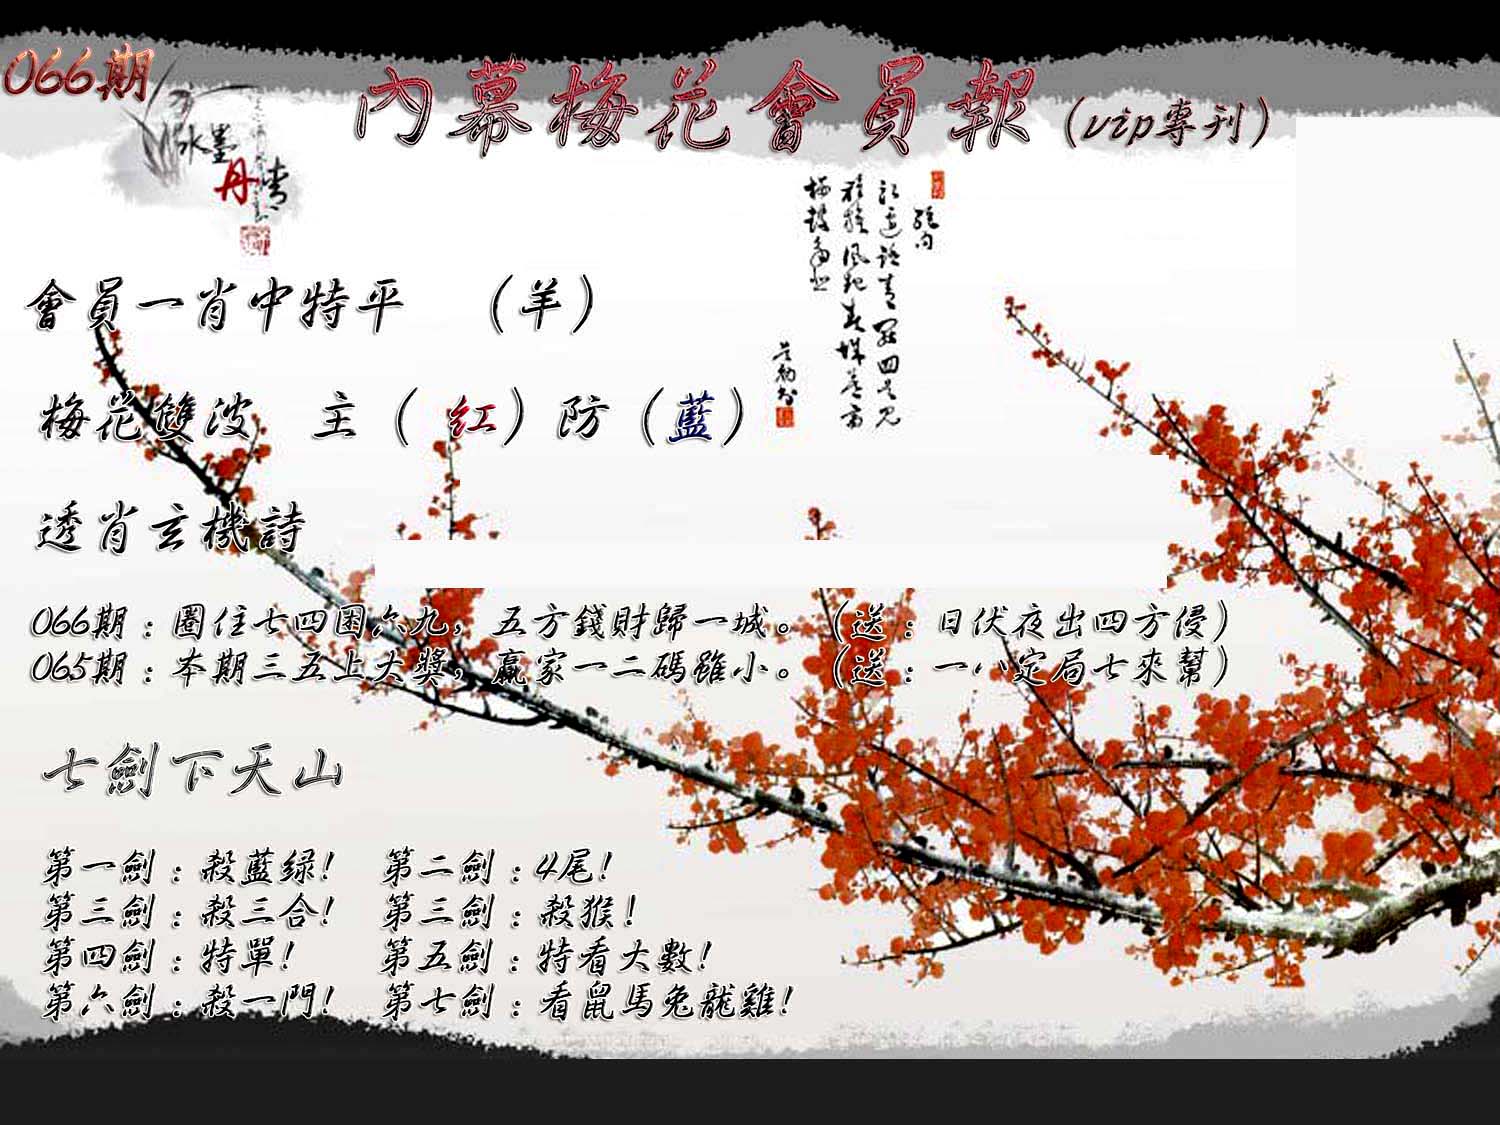 066期
內幕梅花會員報(vip專刊)
水墨
丹青
會員一肖中特平 (羊)
梅花雙波 主(紅)防(藍)
透肖玄機詩
066期:圈住七四困六九,五方錢財歸一城。(送:日伏夜出四方侵)
065期:本期三五上大獎,贏家一二碼雖小。(送:一八定局七來幫)
七劍下天山
第一劍:殺藍绿! 第二劍:4尾!
第三劍:殺三合! 第三劍:殺猴!
第四劍:特單! 第五劍:特看大數!
第六劍:殺一門! 第七劍:看鼠馬兔龍雞!